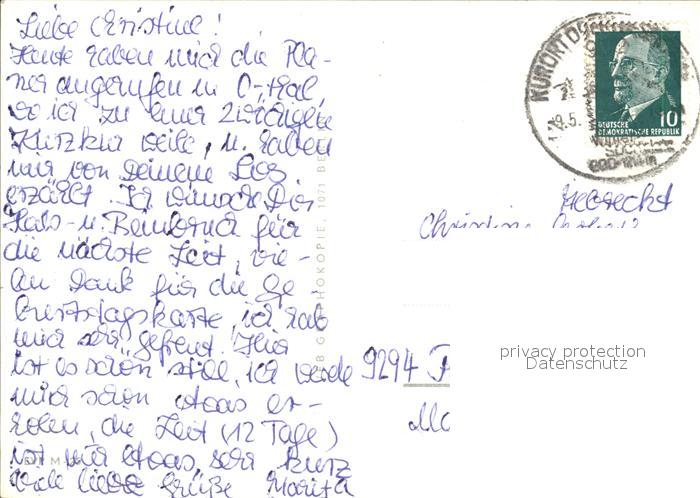 Liebe Christine!
Heute haben mich die Pla-
ner angerufen in O-thal,
wo ich zu einer 2wöchigen
Kurzkur weile, u. haben
mir von Deinem Los
erzählt. Ich wünsche Dir
Hals- u. Beinbruch für
die nächste Zeit, vie-
len Dank für die Ge-
burtstagskarte, ich hab
mich sehr gefreut. Hier
ist es schön still, ich werde
mich schon etwas er-
holen, die Zeit (12 Tage)
ist mir etwas sehr kurz
Viele liebe Grüße Marita
KURORT
9.5.
DEUTSCHE
DEMOKRATISCHE REPUBLIK
10
Christine
9294
privacy protection
Datenschutz